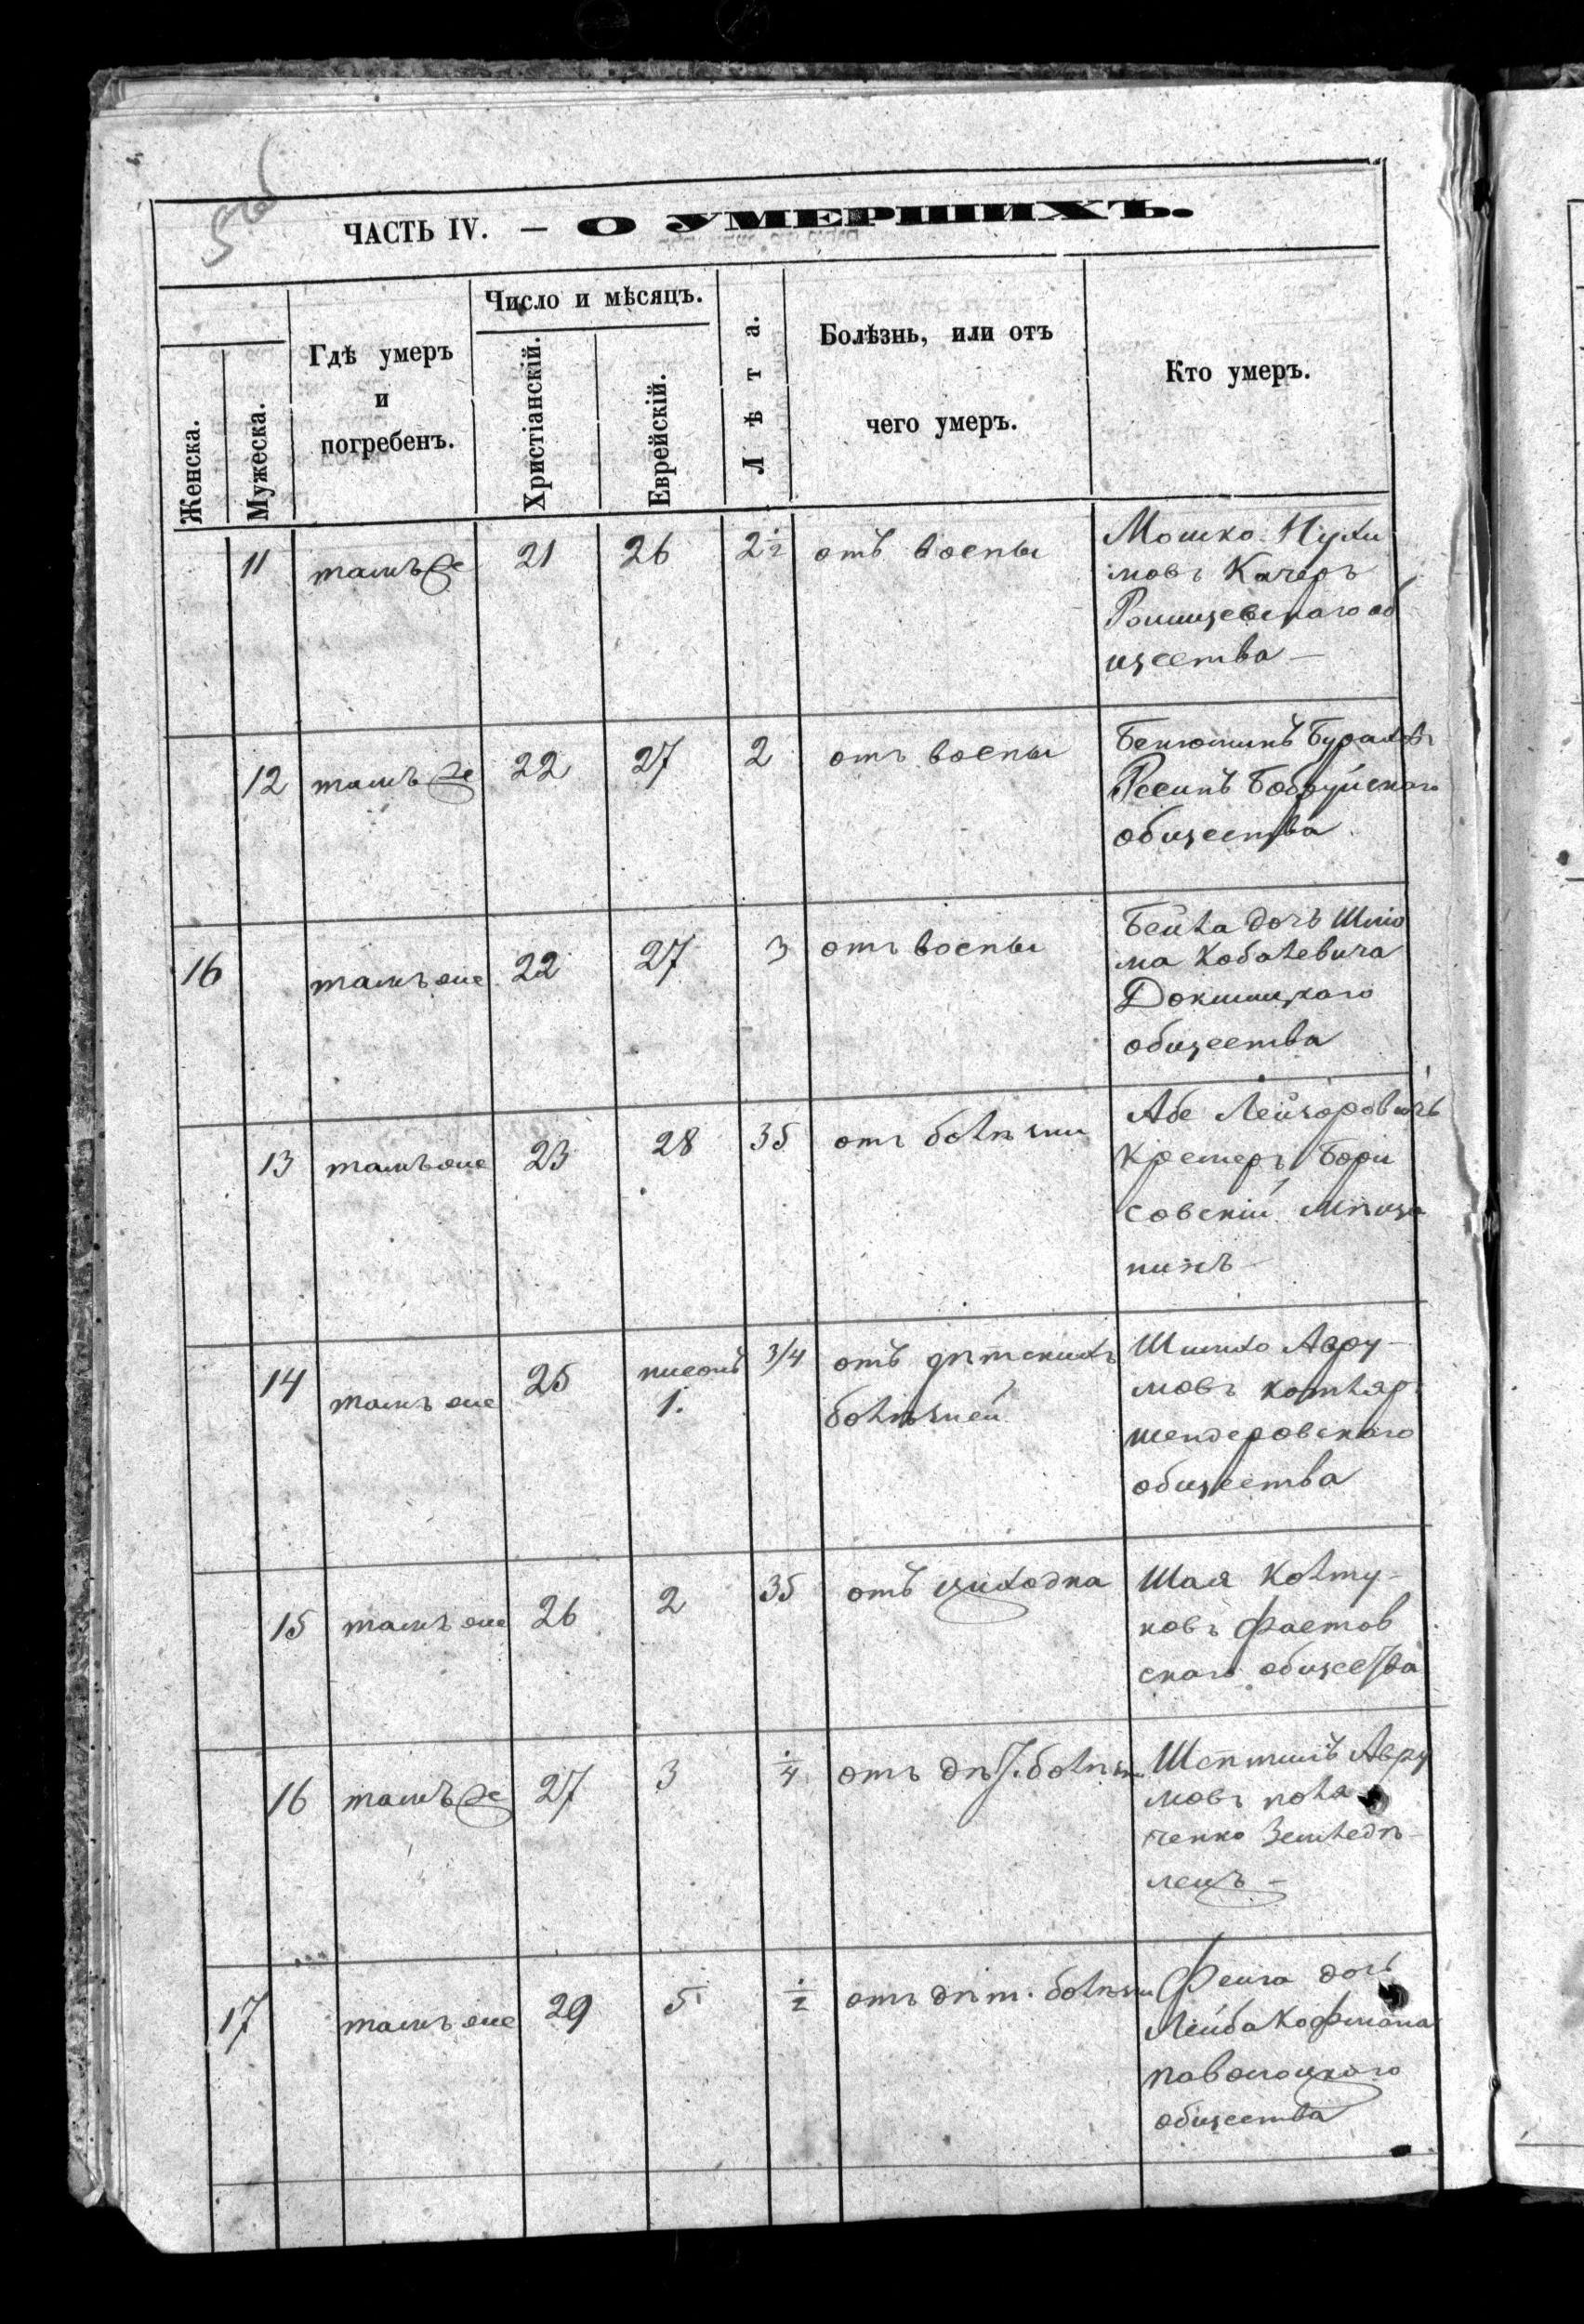 ЧАСТЬ IV. — О УМЕРШИХЪ.
Женска.
Мужеска.
Гдѣ умеръ
и
погребенъ.
Число и мѣсяцъ.
Христіанскій.
Еврейскій.
Лѣта.
Болѣзнь, или отъ
чего умеръ.
Кто умеръ.
11 тамъ же 21 26 2½ отъ воспы Мошко Нухи
мовъ Качеръ
общества —
12 тамъ же 22 27 2 отъ воспы
Бобруйскаго
общества
16 тамъ же 22 27 3 отъ воспы Бейла дочь
Докшицкаго
общества
13 тамъ же 23 28 35 отъ болѣзни Абе Лейзоровичъ
Кремеръ Бори
совскій мѣща
нинъ —
14 тамъ же 25 нисонъ 3/4 отъ дѣтскихъ Авру-
1. болѣзней мовъ котляр
общества
15 тамъ же 26 2 35 отъ Шая Колту-
новъ Фастов
скаго общества
16 тамъ же 27 3 ¼ отъ дѣт. болѣзн. Авру
мовъ поля
ченко Земледѣ-
лецъ —
17 тамъ же 29 5 ½ отъ дѣт. болѣзни Фейга дочь
Лейба Кофмана
паволоцкаго
общества